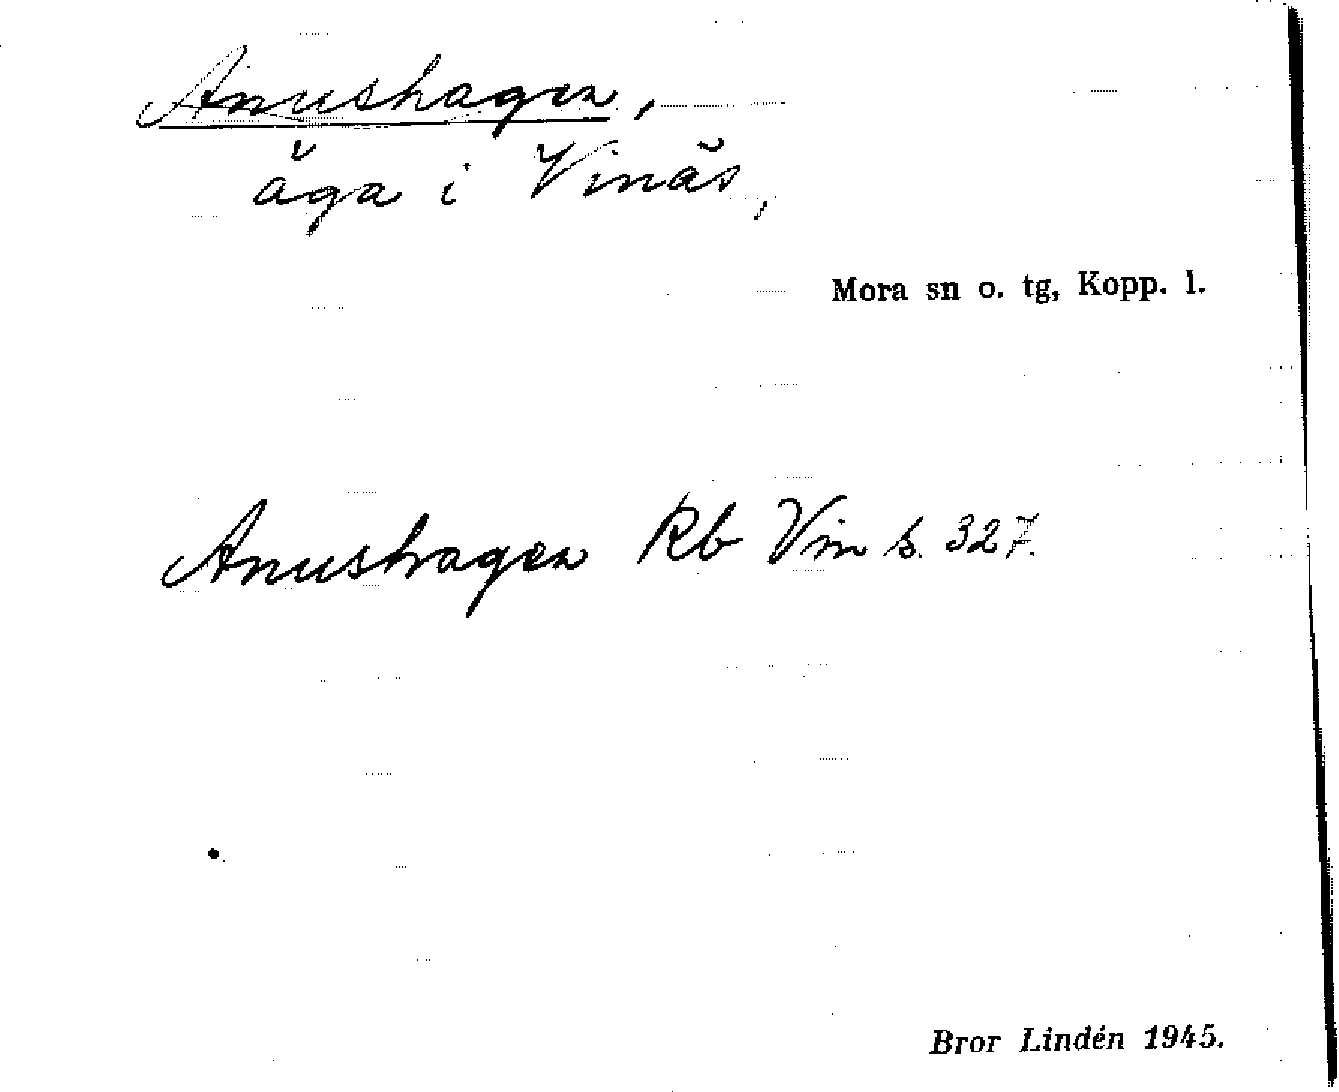 Anushagen,
äga i Vinäs,
Mora sn o. tg, Kopp. l.
Anushagen Rb Vin s. 327.
Bror Lindén 1945.